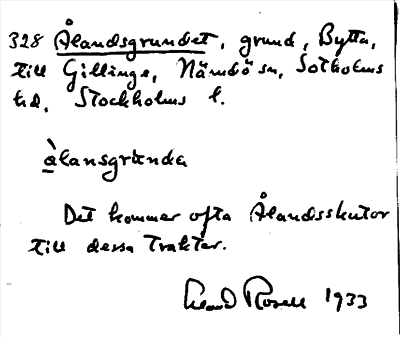 328 Ålandsgrundet, grund, Bytta,
till Gillinge, Nämdö sn, Sotholms
hd, Stockholms l.
àlansgrunda
Det kommer ofta Ålandsskutor
till dessa trakter.
Rosell 1933